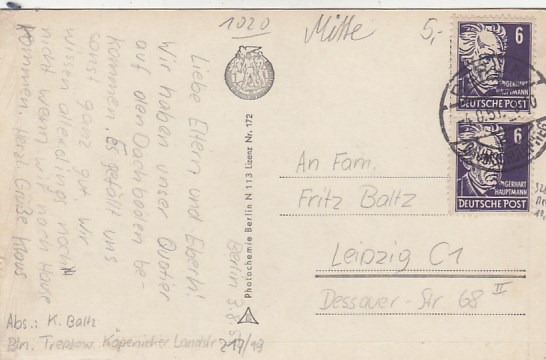 1020
Mitte
5,-
Berlin 3.8.51
Liebe Eltern und Eberh!
Wir haben unser Quatier
auf den Dachboden be-
kommen. Es gefällt uns
sonst ganz gut. Wir
wissen allerdings noch
nicht wenn wir nach Hause
kommen. Herzl. Grüße Klaus
Abs.: K. Baltz
Bln. Treptow. Köpenicker Landstr 217/19
Photochemie Berlin N 113 Lizenz Nr. 172
6
GERHART
HAUPTMANN
DEUTSCHE POST
6
GERHART
HAUPTMANN
DEUTSCHE POST
An Fam.
Fritz Baltz
Leipzig C1
Dessauer-Str 68 II